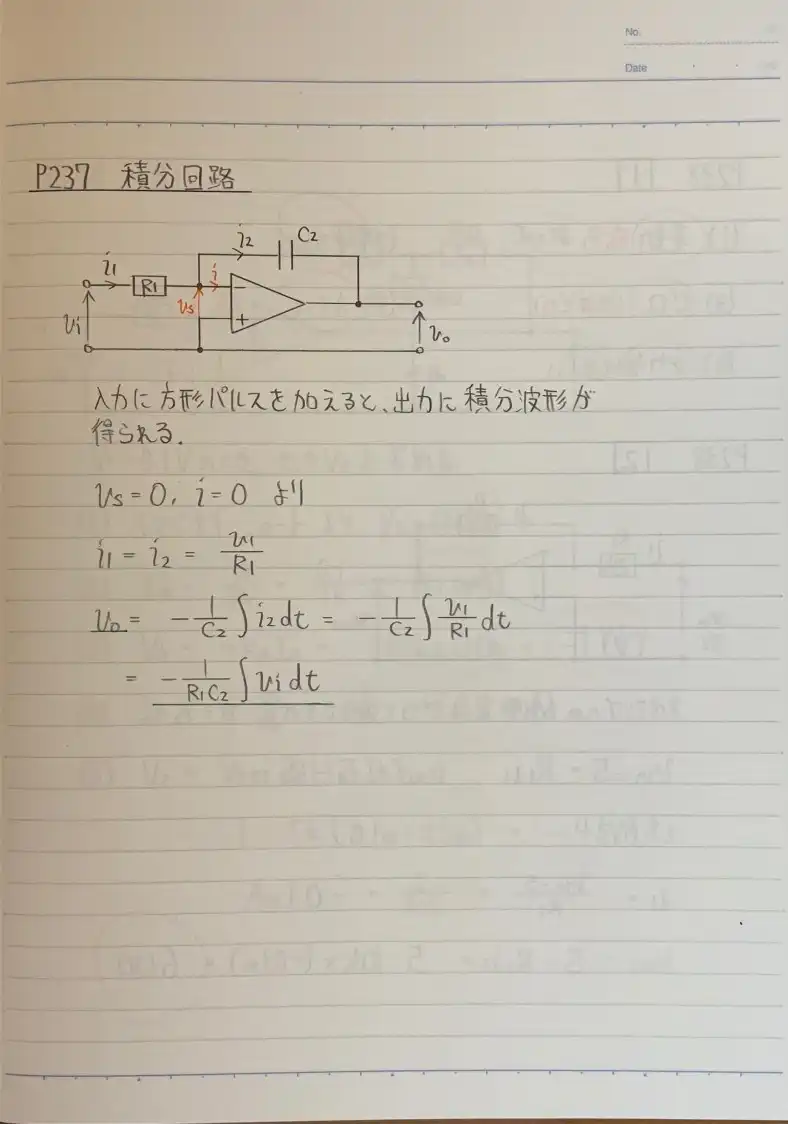 No.
Date
P237 積分回路
i2 C2
i1 R1 i
vs
vi
-
+
vo
入力に方形パルスを加えると、出力に積分波形が
得られる.
vs = 0, i = 0 より
i1 = i2 = v1/R1
vo = -1/C2 ∫ i2 dt = -1/C2 ∫ v1/R1 dt
= -1/R1C2 ∫ vi dt